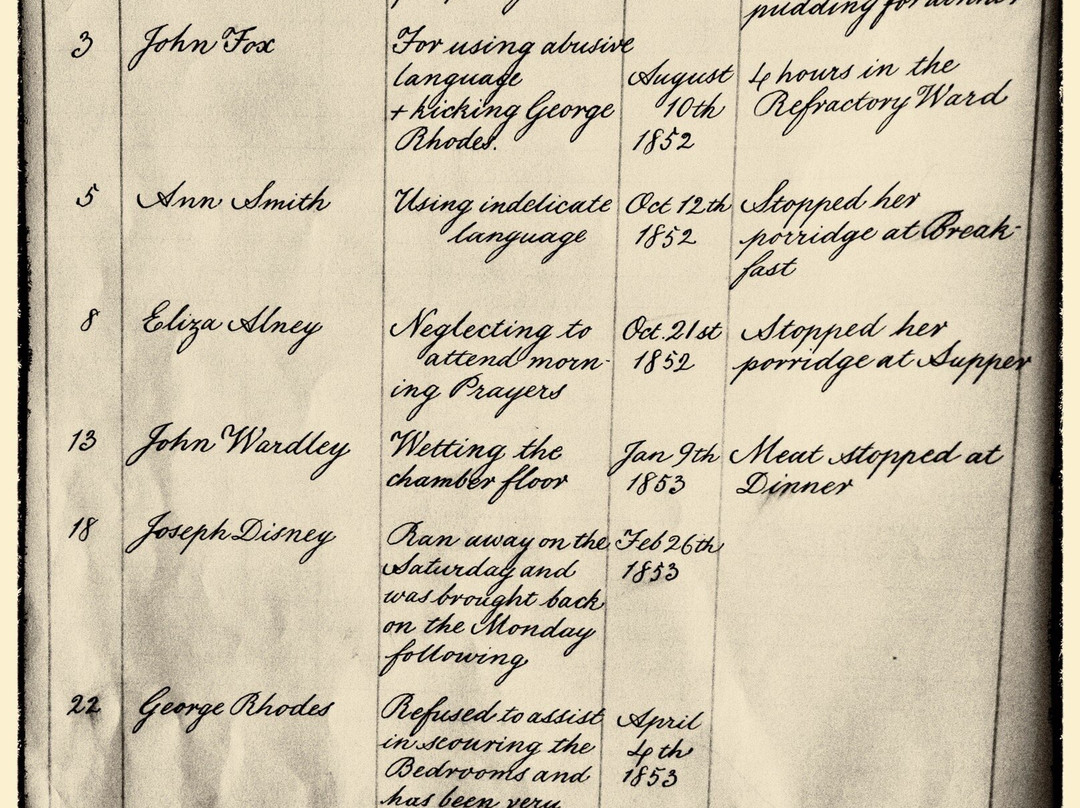 pudding for dinner
3 John Fox For using abusive
language August 4 hours in the
+ kicking George 10th Refractory Ward
Rhodes. 1852
5 Ann Smith Using indelicate Oct 12th Stopped her
language 1852 porridge at Break-
fast
8 Eliza Alney Neglecting to Oct. 21st Stopped her
attend morn- 1852 porridge at Supper
ing Prayers
13 John Wardley Wetting the Jan 9th Meat stopped at
chamber floor 1853 Dinner
18 Joseph Disney Ran away on the Feb 26th
Saturday and 1853
was brought back
on the Monday
following
22 George Rhodes Refused to assist April
in scouring the 4th
Bedrooms and 1853
has been very